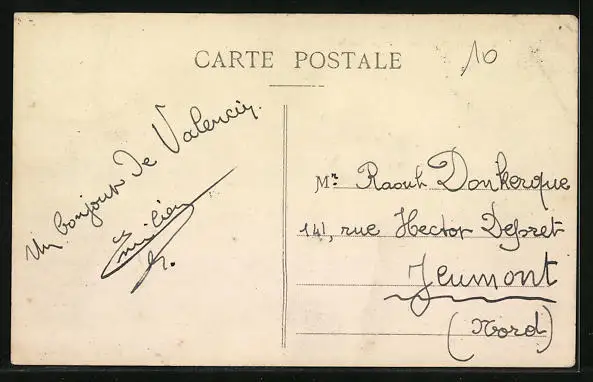 CARTE POSTALE
10
Un bonjour de Valencin.
Emilien
Mr. Raoul Donkerque
141, rue Hector Depret
Jeumont
(Nord)